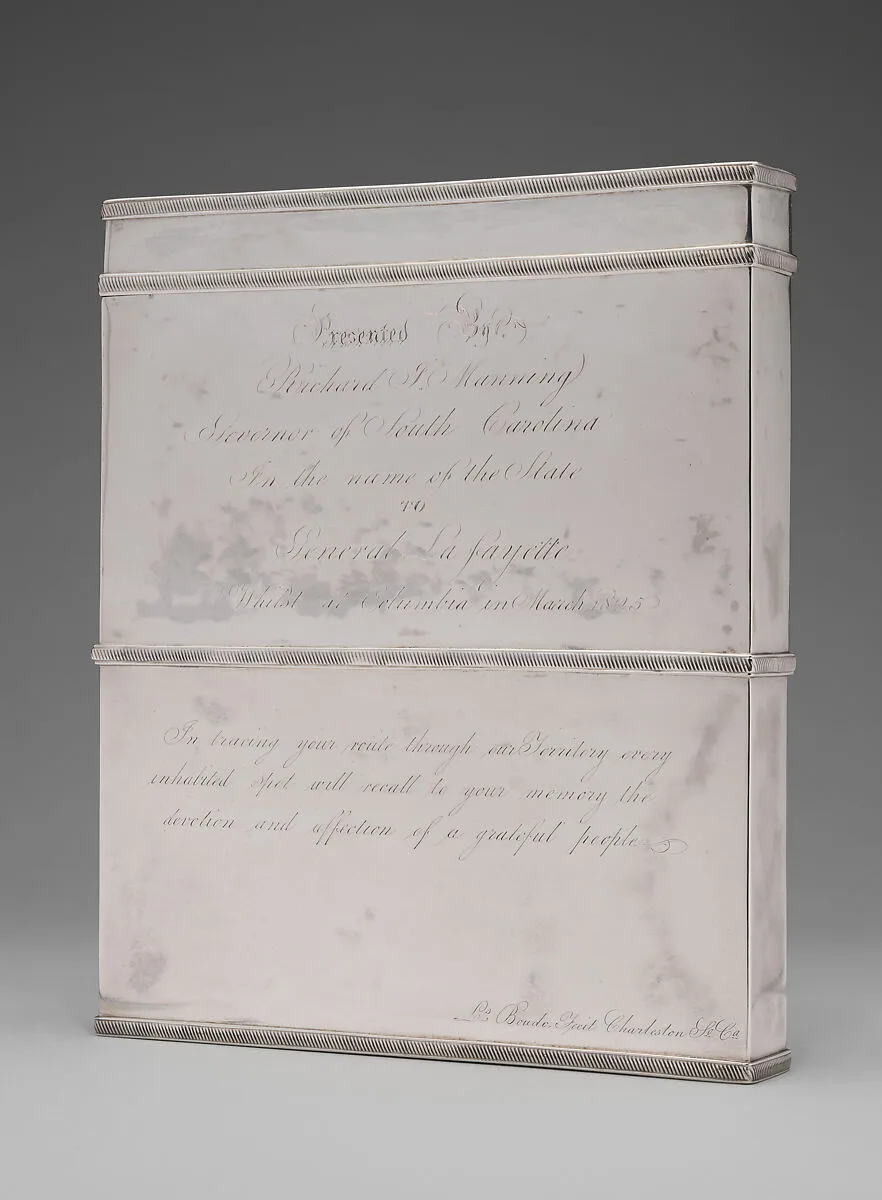 Presented By
Richard I. Manning
Governor of South Carolina
In the name of the State
TO
General La Fayette
Whilst at Columbia in March 1825
In tracing your route through our Territory every
inhabited spot will recall to your memory the
devotion and affection of a grateful people
Ls Boudo, Fecit Charleston So Ca